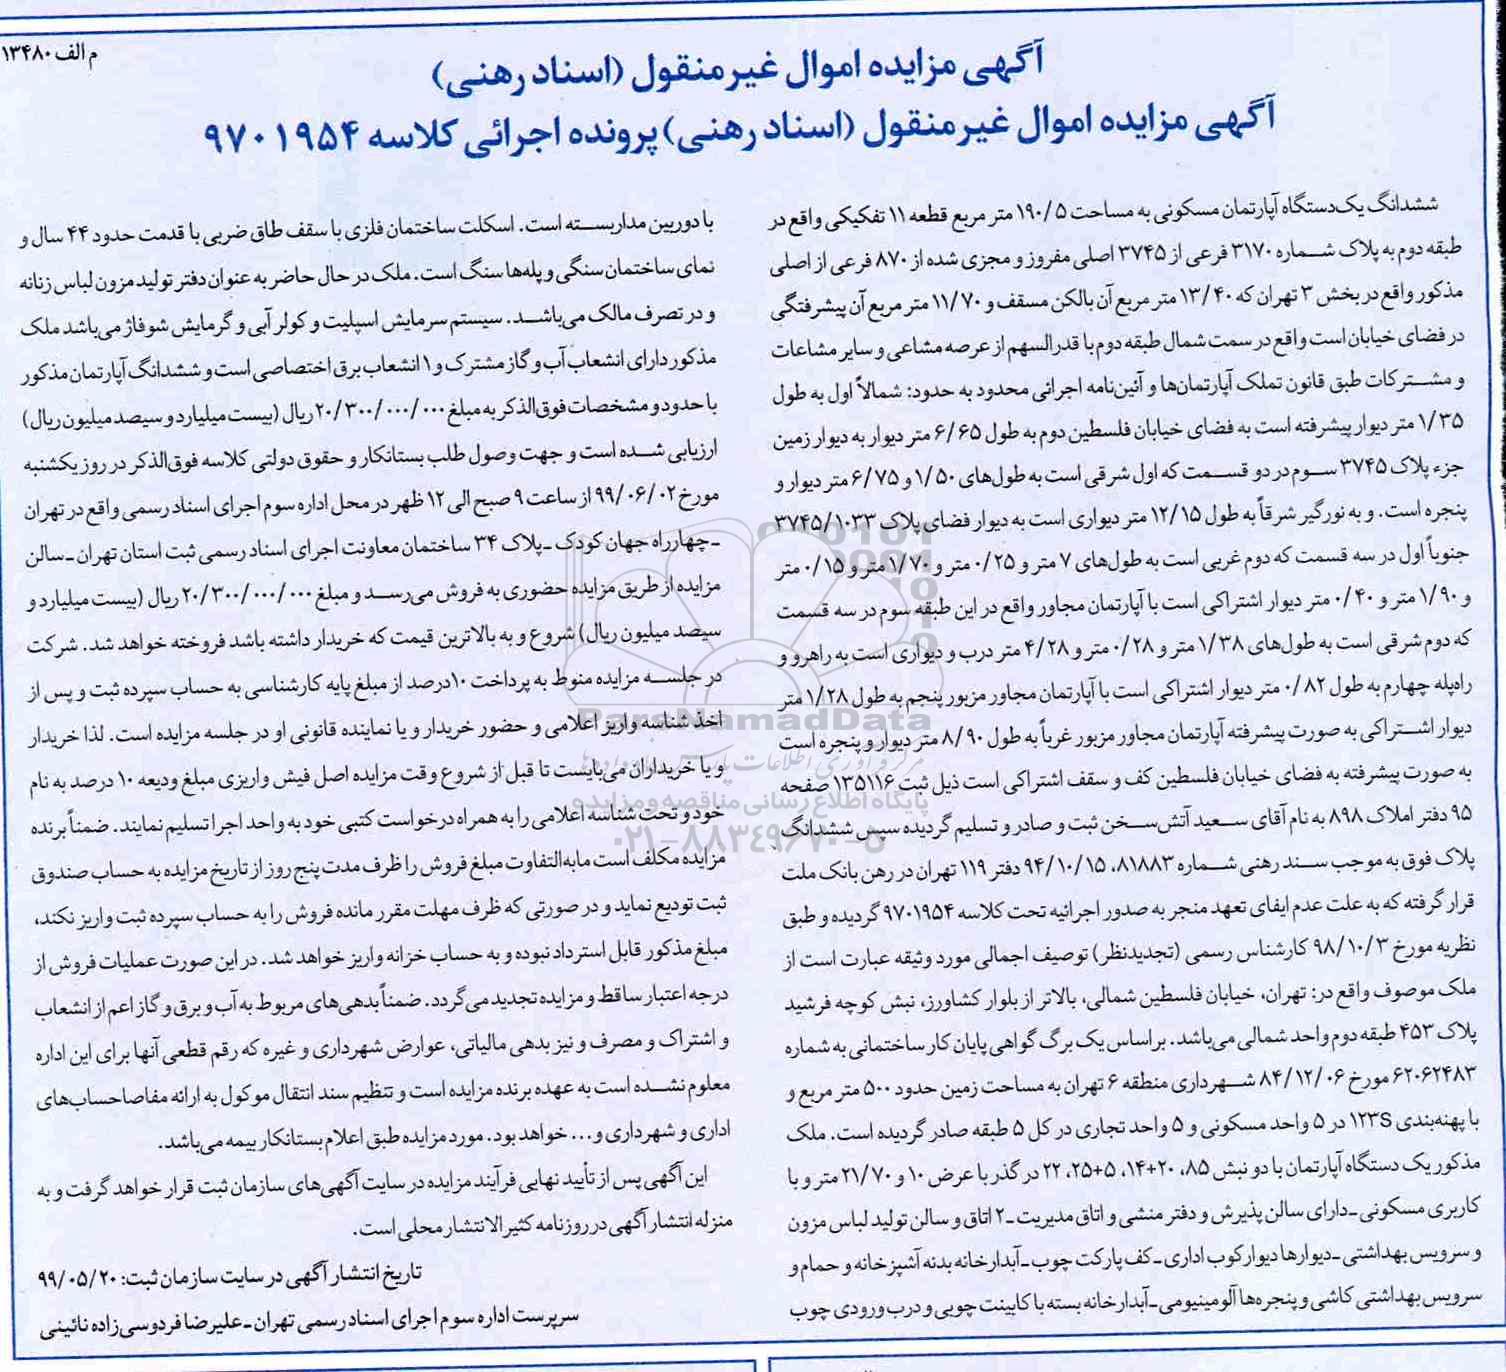 م الف ۱۳۴۸۰
آگهی مزایده اموال غیرمنقول (اسناد رهنی)
آگهی مزایده اموال غیرمنقول (اسناد رهنی) پرونده اجرائی کلاسه ۹۷۰۱۹۵۴
ششدانگ یک‌دستگاه آپارتمان مسکونی به مساحت ۱۹۰/۵ متر مربع قطعه ۱۱ تفکیکی واقع در
طبقه دوم به پلاک شماره ۳۱۷۰ فرعی از ۳۷۴۵ اصلی مفروز و مجزی شده از ۸۷۰ فرعی از اصلی
مذکور واقع در بخش ۳ تهران که ۱۳/۴۰ متر مربع آن بالکن مسقف و ۱۱/۷۰ متر مربع آن پیشرفتگی
در فضای خیابان است واقع در سمت شمال طبقه دوم با قدرالسهم از عرصه مشاعی و سایر مشاعات
و مشترکات طبق قانون تملک آپارتمان‌ها و آئین‌نامه اجرانی محدود به حدود: شمالاً اول به طول
۱/۳۵ متر دیوار پیشرفته است به فضای خیابان فلسطین دوم به طول ۶/۶۵ متر دیوار به دیوار زمین
جزء پلاک ۳۷۴۵ سوم در دو قسمت که اول شرقی است به طول‌های ۱/۵۰ و ۶/۷۵ متر دیوار و
پنجره است. و به نورگیر شرقاً به طول ۱۲/۱۵ متر دیواری است به دیوار فضای پلاک ۳۷۴۵/۱۰۳۳
جنوباً اول در سه قسمت که دوم غربی است به طول‌های ۷ متر و ۰/۲۵ متر و ۱/۷۰ متر و ۰/۱۵ متر
و ۱/۹۰ متر و ۰/۴۰ متر دیوار اشتراکی است با آپارتمان مجاور واقع در این طبقه سوم در سه قسمت
که دوم شرقی است به طول‌های ۱/۳۸ متر و ۰/۲۸ متر و ۴/۲۸ متر درب و دیواری است به راهرو و
راه‌پله چهارم به طول ۰/۸۲ متر دیوار اشتراکی است با آپارتمان مجاور مزبور پنجم به طول ۱/۲۸ متر
دیوار اشتراکی به صورت پیشرفته آپارتمان مجاور مزبور غرباً به طول ۸/۹۰ متر دیوار و پنجره است
به صورت پیشرفته به فضای خیابان فلسطین کف و سقف اشتراکی است ذیل ثبت ۱۳۵۱۱۶ صفحه
۹۵ دفتر املاک ۸۹۸ به نام آقای سعید آتش‌سخن ثبت و صادر و تسلیم گردیده سپس ششدانگ
پلاک فوق به موجب سند رهنی شماره ۸۱۸۸۳، ۹۴/۱۰/۱۵ دفتر ۱۱۹ تهران در رهن بانک ملت
قرار گرفته که به علت عدم ایفای تعهد منجر به صدور اجرائیه تحت کلاسه ۹۷۰۱۹۵۴ گردیده و طبق
نظریه مورخ ۹۸/۱۰/۳ کارشناس رسمی (تجدیدنظر) توصیف اجمالی مورد وثیقه عبارت است از
ملک موصوف واقع در: تهران، خیابان فلسطین شمالی، بالاتر از بلوار کشاورز، نبش کوچه فرشید
پلاک ۴۵۳ طبقه دوم واحد شمالی می‌باشد. براساس یک برگ گواهی پایان کار ساختمانی به شماره
۶۲۰۶۲۴۸۳ مورخ ۸۴/۱۲/۰۶ شهرداری منطقه ۶ تهران به مساحت زمین حدود ۵۰۰ متر مربع و
با پهنه‌بندی ۱۲۳S در ۵ واحد مسکونی و ۵ واحد تجاری در کل ۵ طبقه صادر گردیده است. ملک
مذکور یک دستگاه آپارتمان با دو نبش ۸۵، ۲۰+۱۴، ۵+۲۵، ۲۲ در گذر با عرض ۱۰ و ۲۱/۷۰ متر و با
کاربری مسکونی ـ دارای سالن پذیرش و دفتر منشی و اتاق مدیریت ـ ۲ اتاق و سالن تولید لباس مزون
و سرویس بهداشتی ـ دیوارها دیوارکوب اداری ـ کف پارکت چوب ـ آبدارخانه بدنه آشپزخانه و حمام و
سرویس بهداشتی کاشی و پنجره‌ها آلومینیومی ـ آبدارخانه بسته با کابینت چوبی و درب ورودی چوب
با دوربین مداربسته است. اسکلت ساختمان فلزی با سقف طاق ضربی با قدمت حدود ۴۴ سال و
نمای ساختمان سنگی و پله‌ها سنگ است. ملک در حال حاضر به عنوان دفتر تولید مزون لباس زنانه
و در تصرف مالک می‌باشد. سیستم سرمایش اسپلیت و کولر آبی و گرمایش شوفاژ می‌باشد ملک
مذکور دارای انشعاب آب و گاز مشترک و ۱ انشعاب برق اختصاصی است و ششدانگ آپارتمان مذکور
با حدود و مشخصات فوق‌الذکر به مبلغ ۲۰/۳۰۰/۰۰۰/۰۰۰ ریال (بیست میلیارد و سیصد میلیون ریال)
ارزیابی شده است و جهت وصول طلب بستانکار و حقوق دولتی کلاسه فوق‌الذکر در روز یکشنبه
مورخ ۹۹/۰۶/۰۲ از ساعت ۹ صبح الی ۱۲ ظهر در محل اداره سوم اجرای اسناد رسمی واقع در تهران
ـ چهارراه جهان کودک ـ پلاک ۳۴ ساختمان معاونت اجرای اسناد رسمی ثبت استان تهران ـ سالن
مزایده از طریق مزایده حضوری به فروش می‌رسد و مبلغ ۲۰/۳۰۰/۰۰۰/۰۰۰ ریال (بیست میلیارد و
سیصد میلیون ریال) شروع و به بالاترین قیمت که خریدار داشته باشد فروخته خواهد شد. شرکت
در جلسه مزایده منوط به پرداخت ۱۰درصد از مبلغ پایه کارشناسی به حساب سپرده ثبت و پس از
اخذ شناسه واریز اعلامی و حضور خریدار و یا نماینده قانونی او در جلسه مزایده است. لذا خریدار
و یا خریداران می‌بایست تا قبل از شروع وقت مزایده اصل فیش واریزی مبلغ ودیعه ۱۰ درصد به نام
خود و تحت شناسه اعلامی را به همراه درخواست کتبی خود به واحد اجرا تسلیم نمایند. ضمناً برنده
مزایده مکلف است مابه‌التفاوت مبلغ فروش را ظرف مدت پنج روز از تاریخ مزایده به حساب صندوق
ثبت تودیع نماید و در صورتی که ظرف مهلت مقرر مانده فروش را به حساب سپرده ثبت واریز نکند،
مبلغ مذکور قابل استرداد نبوده و به حساب خزانه واریز خواهد شد. در این صورت عملیات فروش از
درجه اعتبار ساقط و مزایده تجدید می‌گردد. ضمناً بدهی‌های مربوط به آب و برق و گاز اعم از انشعاب
و اشتراک و مصرف و نیز بدهی مالیاتی، عوارض شهرداری و غیره که رقم قطعی آنها برای این اداره
معلوم نشده است به عهده برنده مزایده است و تنظیم سند انتقال موکول به ارائه مفاصاحساب‌های
اداری و شهرداری و... خواهد بود. مورد مزایده طبق اعلام بستانکار بیمه می‌باشد.
این آگهی پس از تأیید نهایی فرآیند مزایده در سایت آگهی‌های سازمان ثبت قرار خواهد گرفت و به
منزله انتشار آگهی در روزنامه کثیرالانتشار محلی است.
تاریخ انتشار آگهی در سایت سازمان ثبت: ۹۹/۰۵/۲۰
سرپرست اداره سوم اجرای اسناد رسمی تهران ـ علیرضا فردوسی‌زاده نائینی
ParsNamadData
پایگاه اطلاع رسانی مناقصه و مزایده
۰۲۱-۸۸۳۴۹۶۷۰-۵